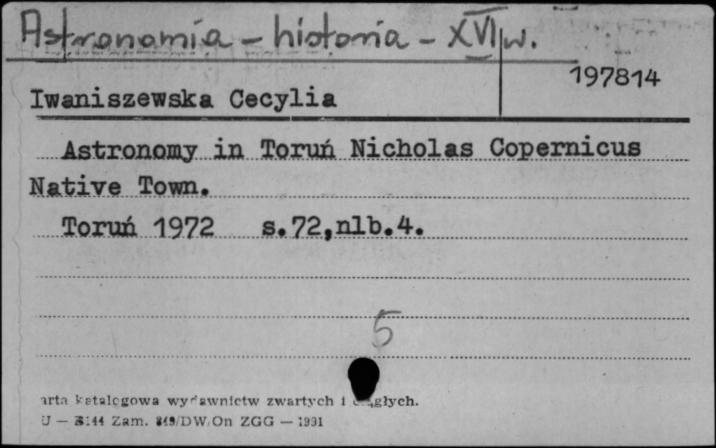 Astronomia - historia - XVI w.
197814
Iwaniszewska Cecylia
Astronomy in Toruń Nicholas Copernicus
Native Town.
Toruń 1972 s.72,nlb.4.
5
arta katalogowa wydawnictw zwartych i ciągłych.
U — Zam. 849/DW/On ZGG — 1991